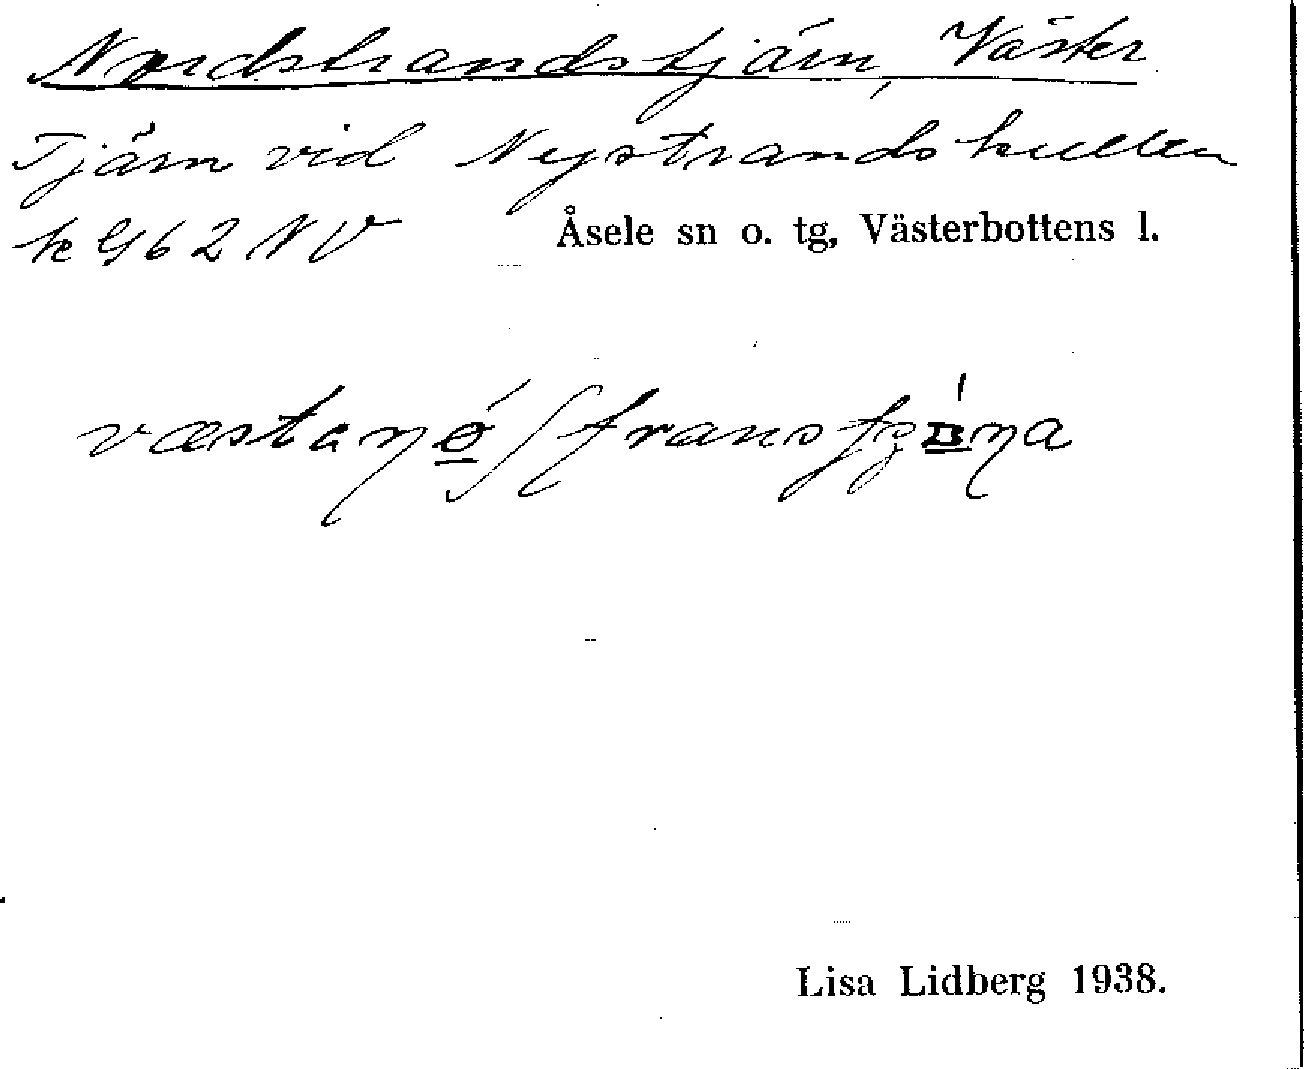 Nordstrandstjärn, Väster
Tjärn vid Nystrandskullen
k G 62 NV
Åsele sn o. tg, Västerbottens l.
Lisa Lidberg 1938.